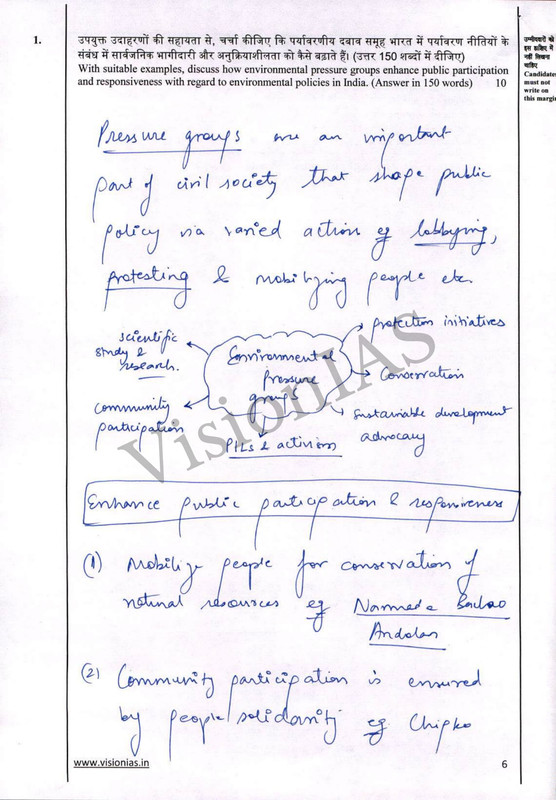 1.
उपयुक्त उदाहरणों की सहायता से, चर्चा कीजिए कि पर्यावरणीय दबाव समूह भारत में पर्यावरण नीतियों के
संबंध में सार्वजनिक भागीदारी और अनुक्रियाशीलता को कैसे बढ़ाते हैं। (उत्तर 150 शब्दों में दीजिए)
With suitable examples, discuss how environmental pressure groups enhance public participation
and responsiveness with regard to environmental policies in India. (Answer in 150 words) 10
उम्मीदवारों को
इस हाशिए में
नहीं लिखना
चाहिए
Candidates
must not
write on
this margin
Pressure groups are an important
part of civil society that shape public
policy via varied action eg lobbying,
protesting & mobilizing people etc.
scientific
study &
research.
community
participation
Environmental
Pressure
groups
PILs & activism
protection initiatives
Conservation
Sustainable development
advocacy
Enhance public participation & responsiveness
(1) Mobilize people for conservation of
natural resources eg Narmada Bachao
Andolan
(2) Community participation is ensured
by people/solidarity eg Chipko
VisionIAS
www.visionias.in
6